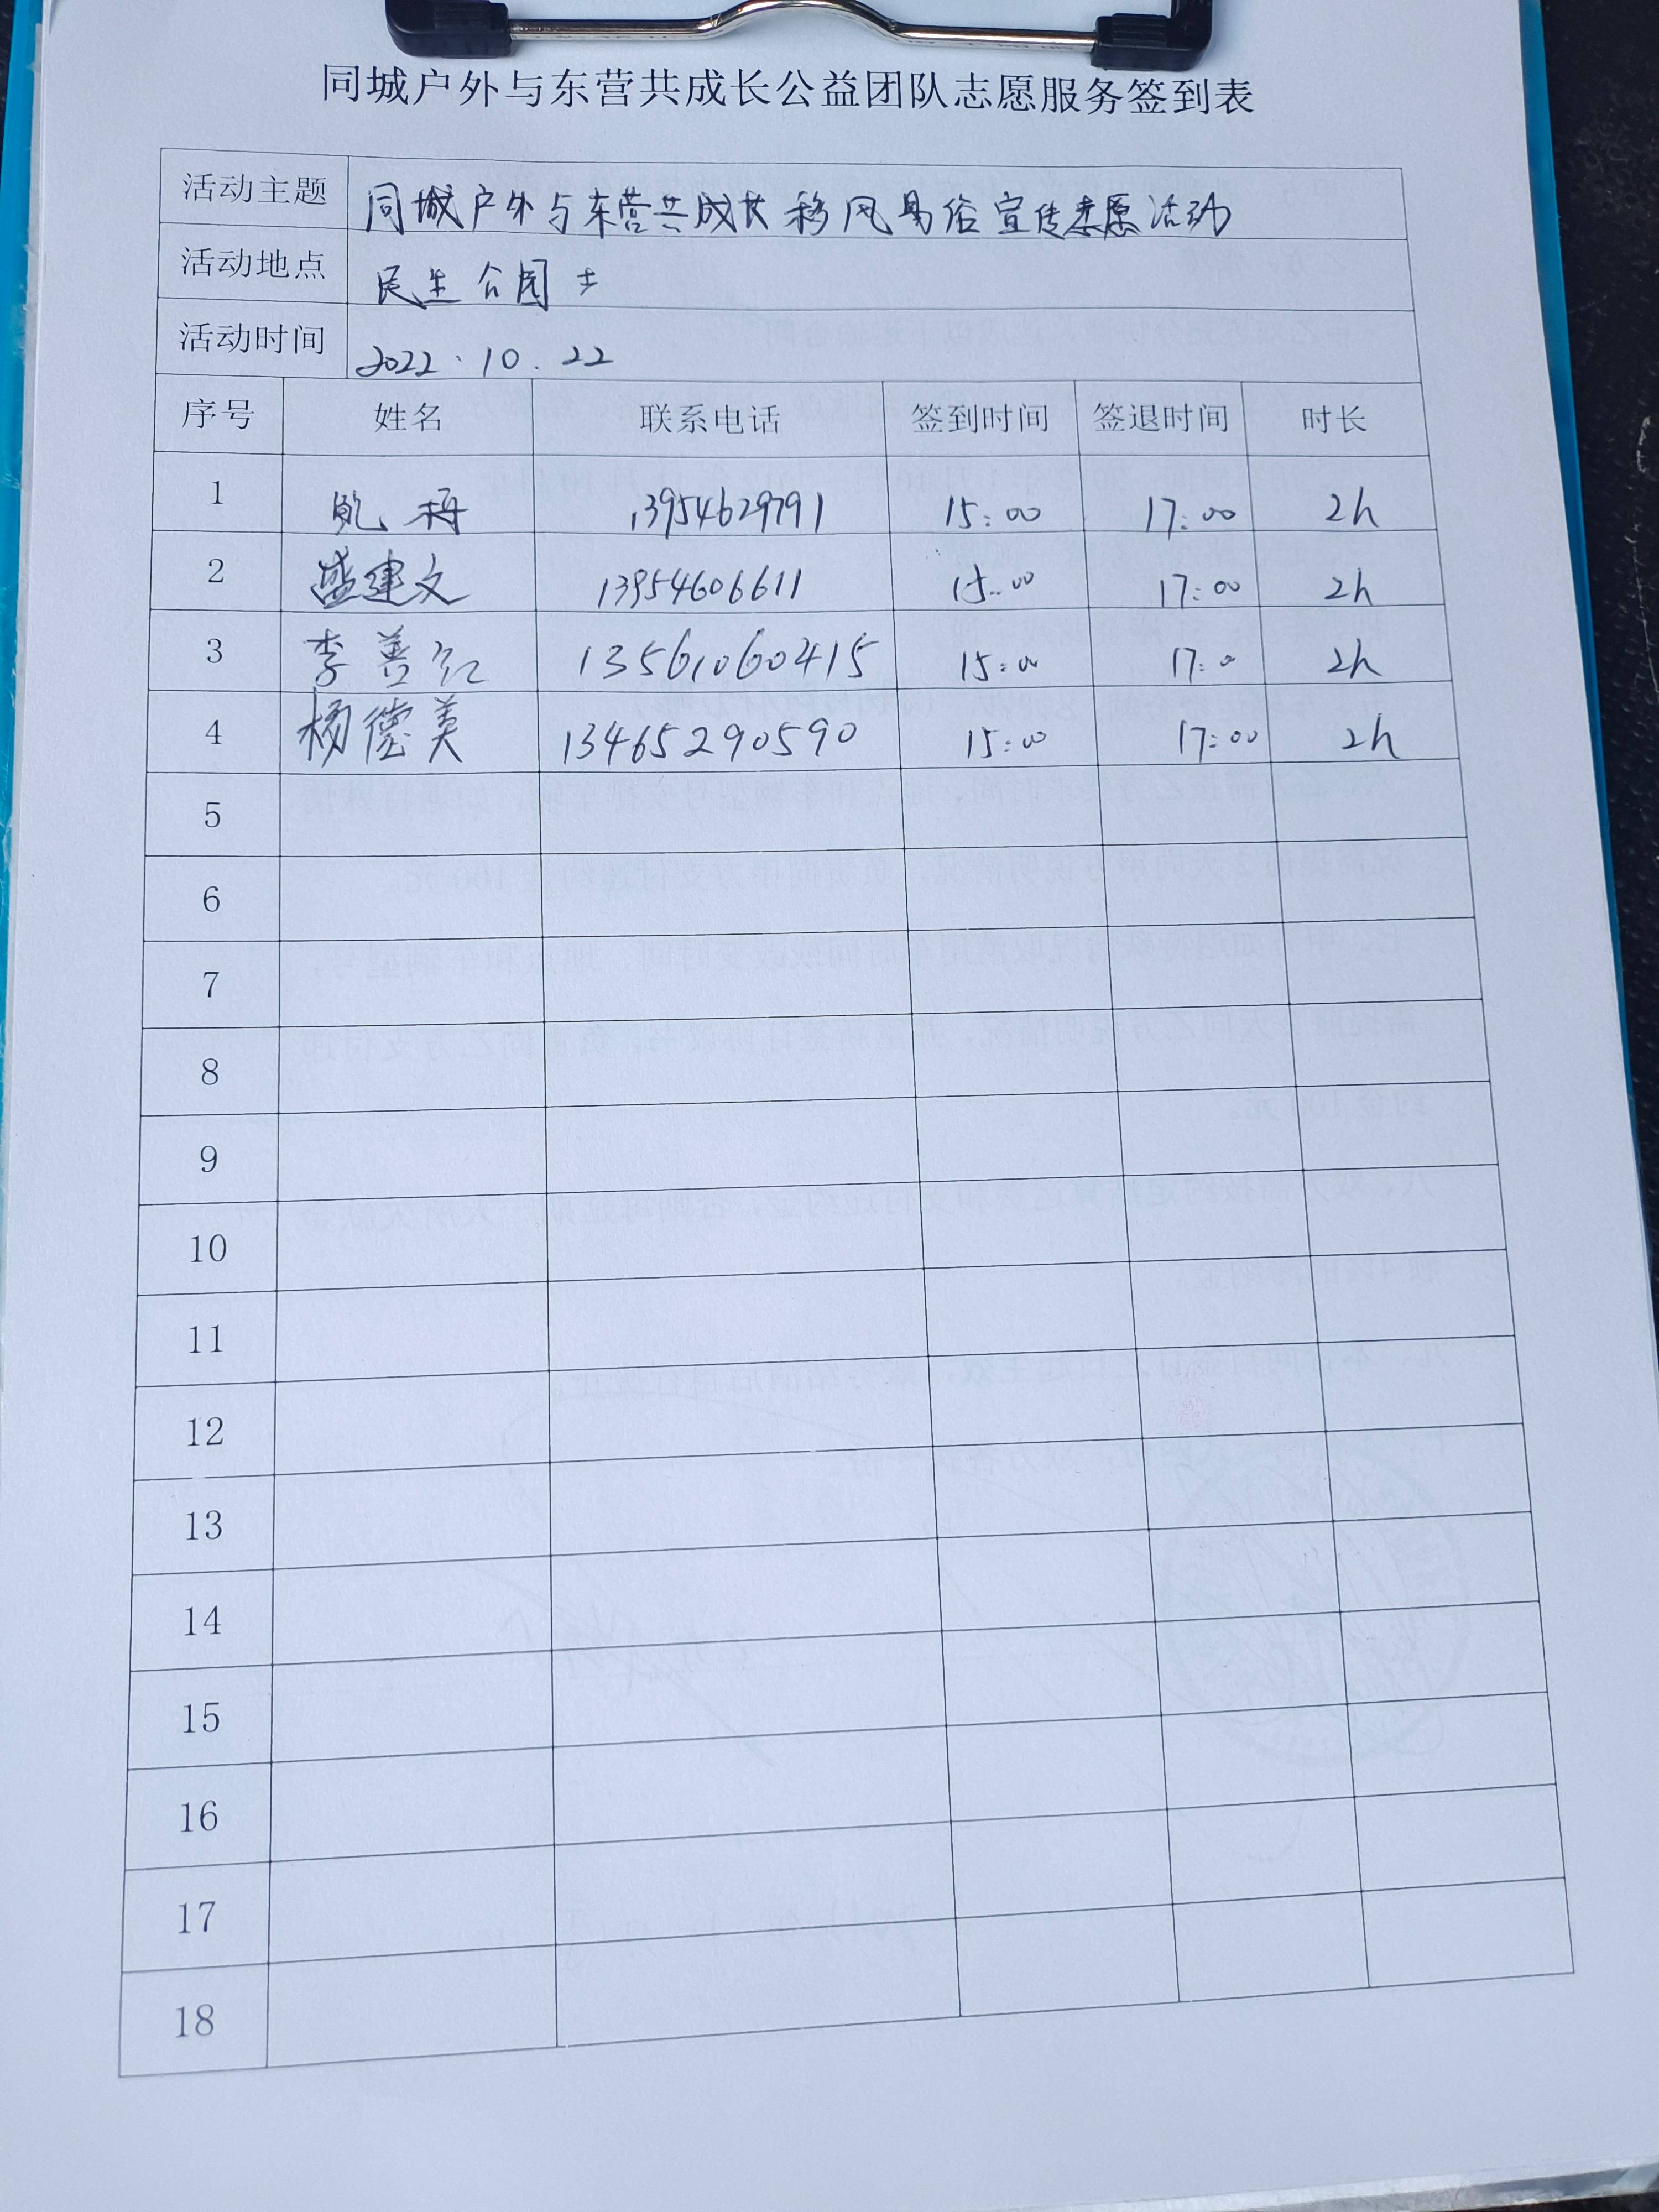 同城户外与东营共成长公益团队志愿服务签到表
活动主题 同城户外与东营共成长移风易俗宣传志愿活动
活动地点 民生公园
活动时间 2022.10.22
序号 姓名 联系电话 签到时间 签退时间 时长
1 鲍 13954629791 15:00 17:00 2h
2 盛建文 13954606611 15:00 17:00 2h
3 李善红 13561060415 15:00 17:0 2h
4 杨德美 13465290590 15:00 17:00 2h
5
6
7
8
9
10
11
12
13
14
15
16
17
18